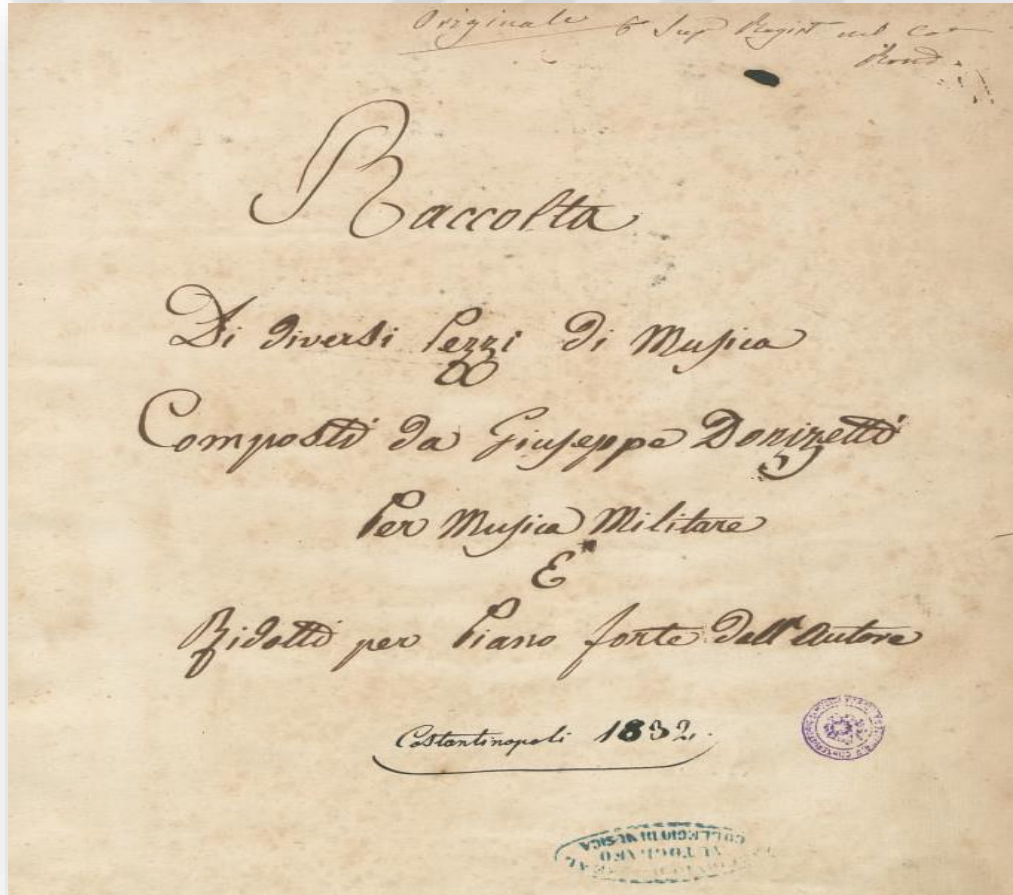 Originale
Raccolta
Di diversi Pezzi di Musica
Composti da Giuseppe Donizetti
Per Musica Militare
E
Ridotti per Piano forte dall'Autore
Costantinopoli 1832.
AUTOGRAFO
COLLEGIO DI MUSICA